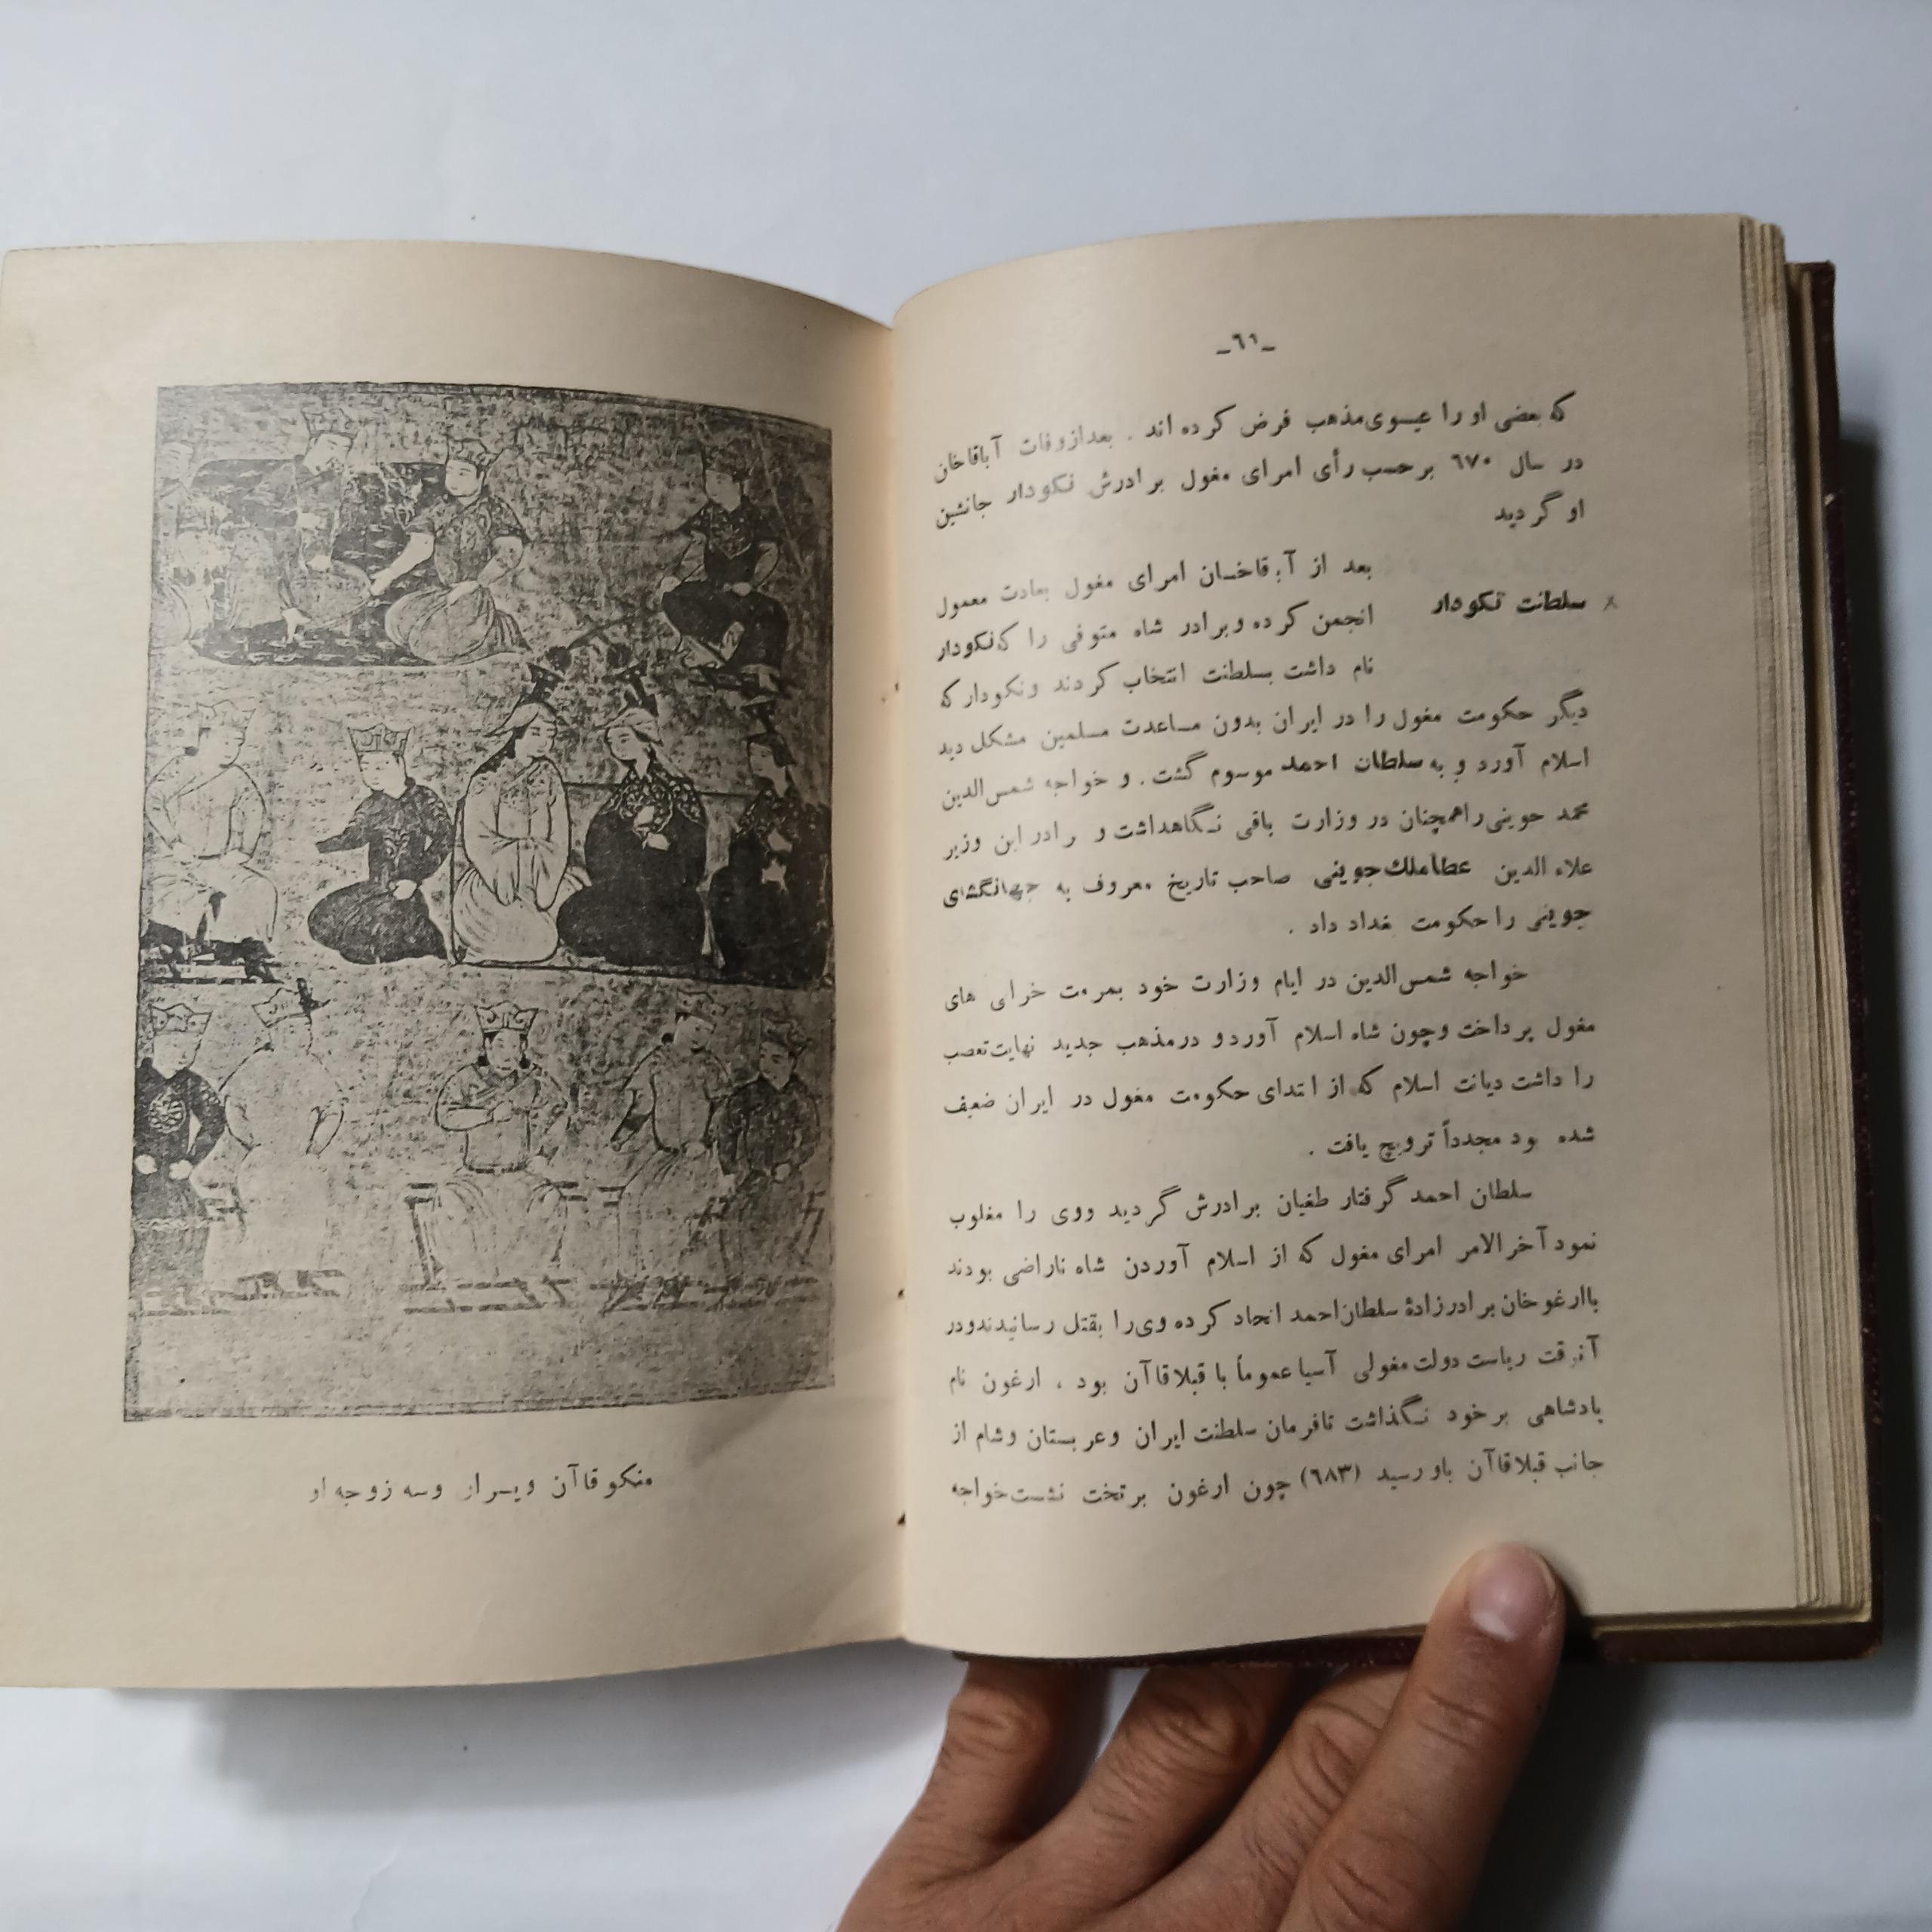 ـ٦١ـ
که بعضی او را عیسوی‌مذهب فرض کرده اند . بعدازوفات آباقاخان
در سال ٦٧٠ برحسب رأی امرای مغول برادرش تکودار جانشین
او گردید
سلطنت تکودار
بعد از آبقاخان امرای مغول بعادت معمول
انجمن کرده وبرادر شاه متوفی را که‌تکودار
نام داشت بسلطنت انتخاب کردند وتکودار که
دیگر حکومت مغول را در ایران بدون مساعدت مسلمین مشکل دید
اسلام آورد و به سلطان احمد موسوم گشت . و خواجه شمس‌الدین
محمد جوینی‌راهمچنان در وزارت باقی نگاهداشت و برادر این وزیر
علاء الدین عطاملك‌جوینی صاحب تاریخ معروف به جهانگشای
جوینی را حکومت بغداد داد .
خواجه شمس‌الدین در ایام وزارت خود بمرمت خرابی های
مغول پرداخت وچون شاه اسلام آورد و درمذهب جدید نهایت‌تعصب
را داشت دیانت اسلام که از ابتدای حکومت مغول در ایران ضعیف
شده بود مجدداً ترویج یافت .
سلطان احمد گرفتار طغیان برادرش گردید ووی را مغلوب
نمود آخرالامر امرای مغول که از اسلام آوردن شاه ناراضی بودند
باارغوخان برادرزادهٔ سلطان‌احمد اتحاد کرده وی‌را بقتل رسانیدندودر
آنوقت ریاست دولت مغولی آسیا عموماً با قبلاقاآن بود ، ارغون نام
پادشاهی برخود نگذاشت تافرمان سلطنت ایران وعربستان وشام از
جانب قبلاقاآن باو رسید (٦٨٣) چون ارغون برتخت نشست‌خواجه
منکوقاآن وپسران وسه زوجه او